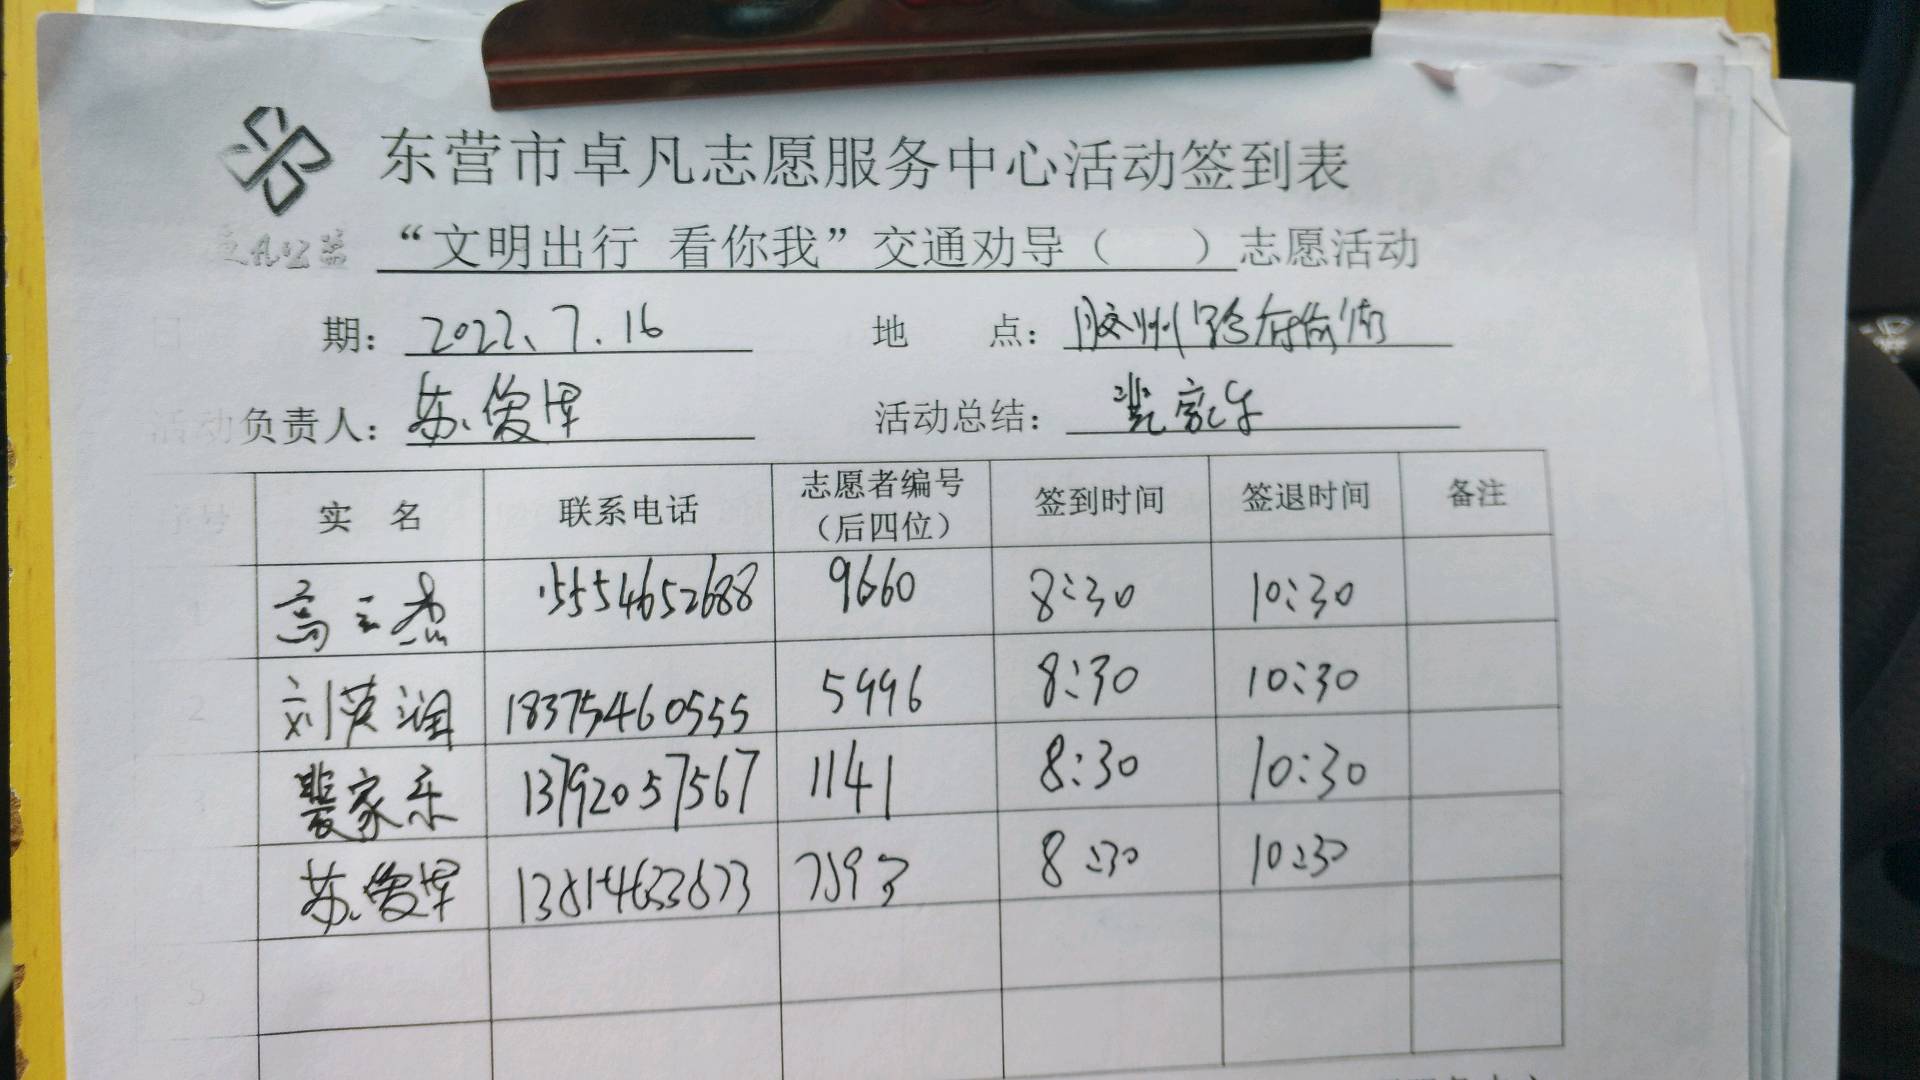 东营市卓凡志愿服务中心活动签到表
卓凡公益
“文明出行 看你我”交通劝导（ ）志愿活动
日 期：2022、7.16 地 点：胶州路府前街
活动负责人：苏俊泽 活动总结：裴家乐
序号 实 名 联系电话 志愿者编号（后四位） 签到时间 签退时间 备注
1 高云杰 15554652688 9660 8:30 10:30
2 刘英润 18375460555 5996 8:30 10:30
3 裴家乐 13792057567 1141 8:30 10:30
4 苏俊泽 7593 8:30 10:30
5